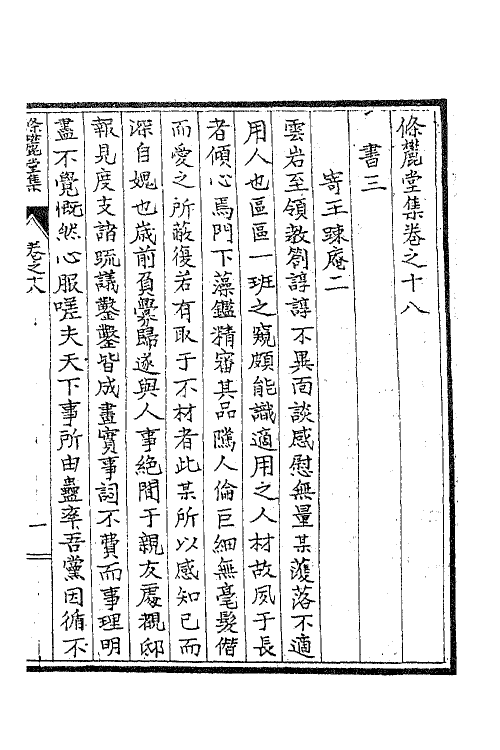 條麓堂集卷之十八
書三
寄王疎庵二
雲岩至領教劄諄諄不異面談感慰無量某薄落不適
用人也區區一班之窺頗能識適用之人材故夙于長
者傾心焉門下藻鑑精審其品隲人倫巨細無毫髮僭
而愛之所蔽復若有取于不材者此某所以感知已而
深自媿也歲前負釁歸遂與人事絕間于親友處覩邸
報見度支諸疏議鑿鑿皆成畫實事詞不費而事理明
盡不覺慨然心服嗟夫天下事所由蠱率吾黨因循不
條麓堂集
卷之十八
一